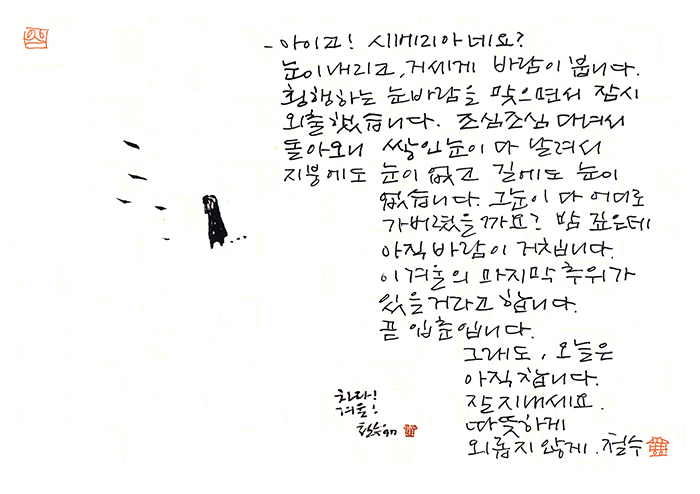 - 아이고! 시베리아네요?
눈이 내리고, 거세게 바람이 붑니다.
횡행하는 눈바람을 맞으면서 잠시
외출했습니다. 조심조심 다녀서
돌아오니 쌓인 눈이 다 날려서
지붕에도 눈이 없고 길에도 눈이
없습니다. 그 눈이 다 어디로
가버렸을까요? 밤 깊은데
아직 바람이 거칩니다.
이 겨울의 마지막 추위가
있을 거라고 합니다.
곧 입춘입니다.
그래도, 오늘은
아직 찹니다.
잘 지내세요.
따뜻하게
외롭지 않게. 철수
차다!
겨울!
철수